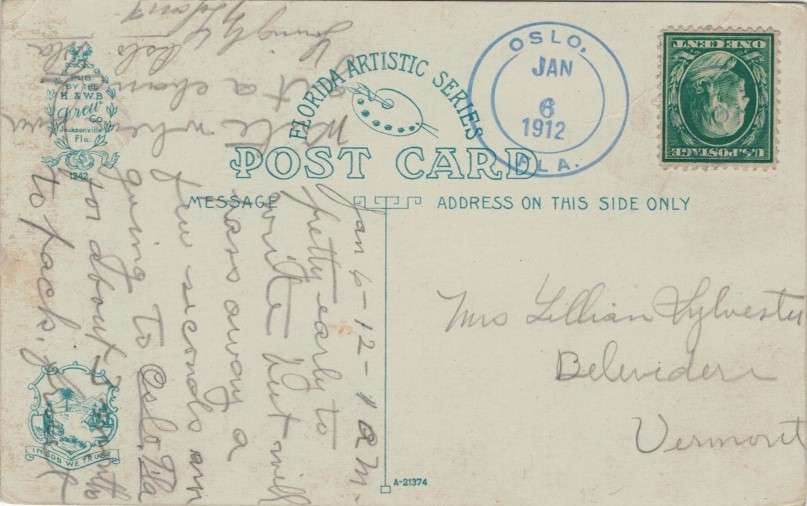 PUB
BY THE
H. & W.B.
Drew
Co.
Jacksonville
Fla.
1242
FLORIDA ARTISTIC SERIES
POST CARD
MESSAGE
ADDRESS ON THIS SIDE ONLY
OSLO,
JAN
6
1912
FLA.
U.S. POSTAGE
ONE CENT
Jan 6-12-1 a m.
pretty early to
write but will
pass away a
few seconds am
going to Oslo. Fla
for about 3 months
to pack fruit
Write when
get a chance
Oslo Fla
Mrs Lillian Sylvester
Belvidere
Vermont
IN GOD WE TRUST
A-21374